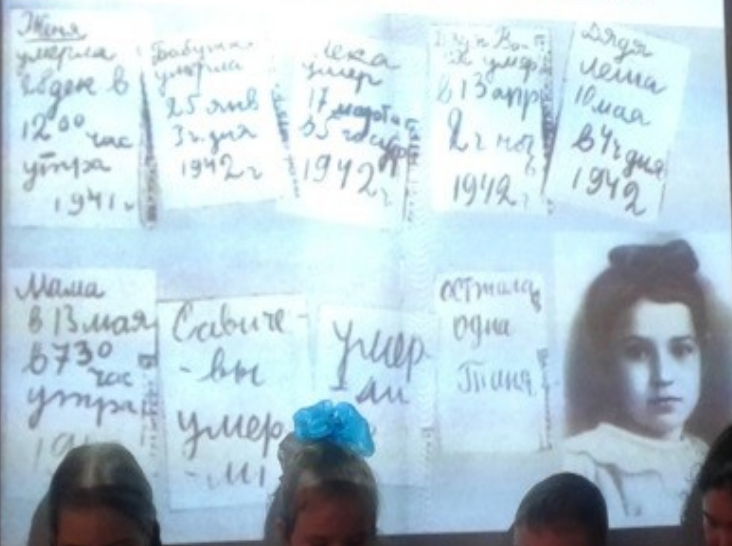 Женя
умерла
28 дек в
12 00 час
утра
1941 г
Бабушка
умерла
25 янв
3 ч. дня
1942 г
Лека
умер
17 марта
в 5 час утр
1942 г
Дядя Вася
умер
в 13 апр
2 ч ноч
1942 г
Дядя
Леша
10 мая
в 4 ч дня
1942
Мама
в 13 мая
в 7 30
час
утра
19
Савиче-
-вы
умер
-ли
умер
-ли
осталась
одна
Таня